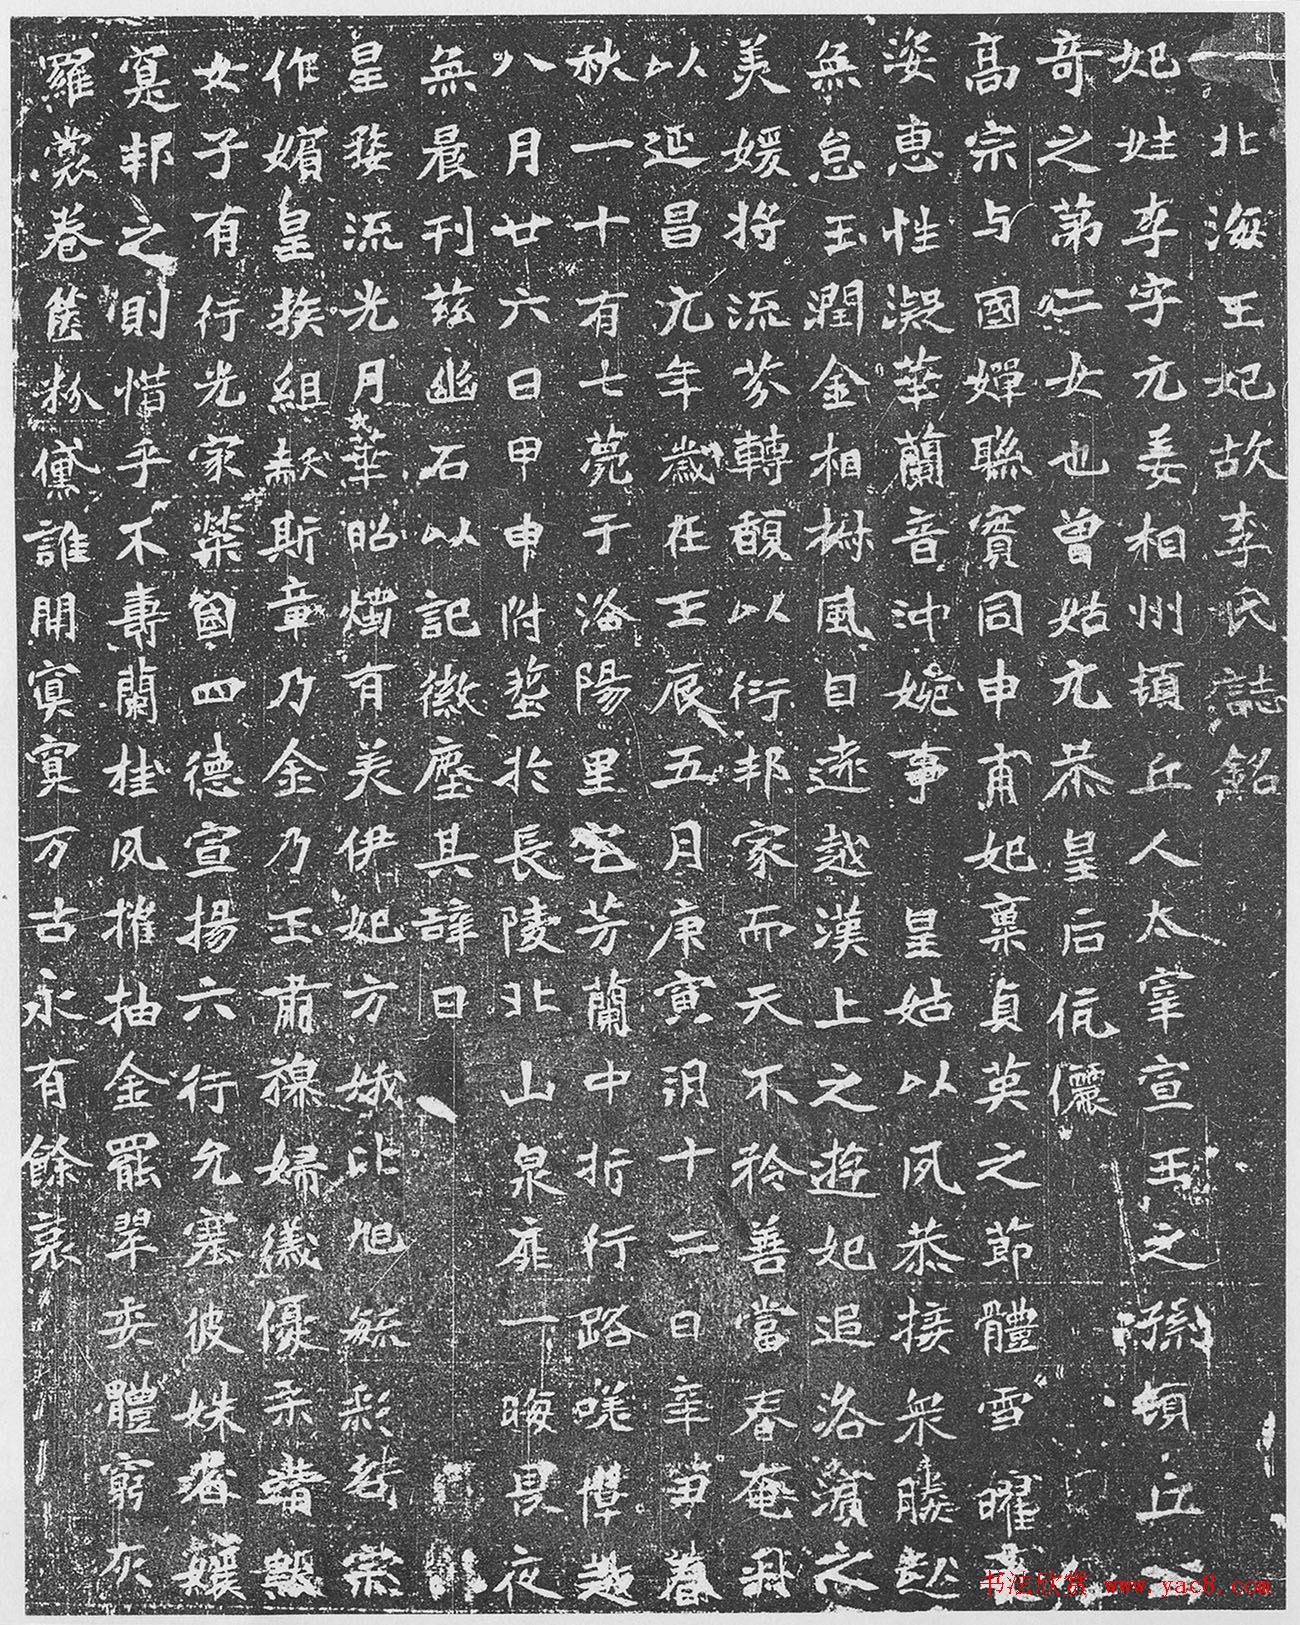 北海王妃故李氏誌銘
妃姓李字元姜相州頓丘人太宰宣王之孫頓丘
奇之第二女也曾姑元恭皇后伉儷
高宗与國嬋聯賓同申甫妃稟貞英之節體雪曜
姿惠性凝華蘭音沖婉事皇姑以夙恭接衆勝
無怠玉潤金相樹風自遠越漢上之遊妃追洛濱之
美媛將流芬轉馥以衍邦家而天不矜善當春奄
以延昌元年歲在壬辰五月庚寅朔十二日辛丑春
秋一十有七薨于洛陽里宅芳蘭中折行路嗟憚
八月廿六日甲申附塟於長陵北山泉扉一晦畏夜
無晨刊茲幽石以記徽塵其辭曰
皇婺流光月華昭燭有美伊妃方娥比旭毓彩
作嬪皇族組黻斯章乃金乃玉肅穆婦儀優柔
女子有行光家榮國四德宣揚六行允塞彼姝
寔邦之則惜乎不壽蘭桂夙摧抽金罷翠委體窮灰
羅裳卷篋粉黛誰開寞寞万古永有餘哀
书法欣赏 www.yac8.com